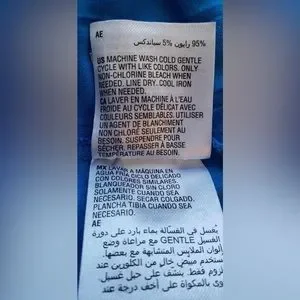 AE
95% رايون %5 سباندكس
US MACHINE WASH COLD GENTLE
CYCLE WITH LIKE COLORS. ONLY
NON-CHLORINE BLEACH WHEN
NEEDED. LINE DRY. COOL IRON
WHEN NEEDED.
CA LAVER EN MACHINE À L'EAU
FROIDE AU CYCLE DÉLICAT AVEC
COULEURS SEMBLABLES. UTILISER
UN AGENT DE BLANCHIMENT
NON CHLORÉ SEULEMENT AU
BESOIN. SUSPENDRE POUR
SÉCHER. REPASSER À BASSE
TEMPÉRATURE AU BESOIN.
MX LAVAR A MÁQUINA EN
AGUA FRÍA CICLO DELICADO
CON COLORES SIMILARES.
BLANQUEADOR SIN CLORO
SOLAMENTE CUANDO SEA
NECESARIO. SECAR COLGADO.
PLANCHA TIBIA CUANDO SEA
NECESARIO.
AE
يُغسل في الغسالة بماء بارد على دورة
الغسيل GENTLE مع مراعاة وضع
ألوان الملابس المتشابهة مع بعضها.
يستخدم مبيض خال من الكلورين عند
لزوم فقط. ينشف على حبل غسيل
وي بالمكواة على أخف درجة عند